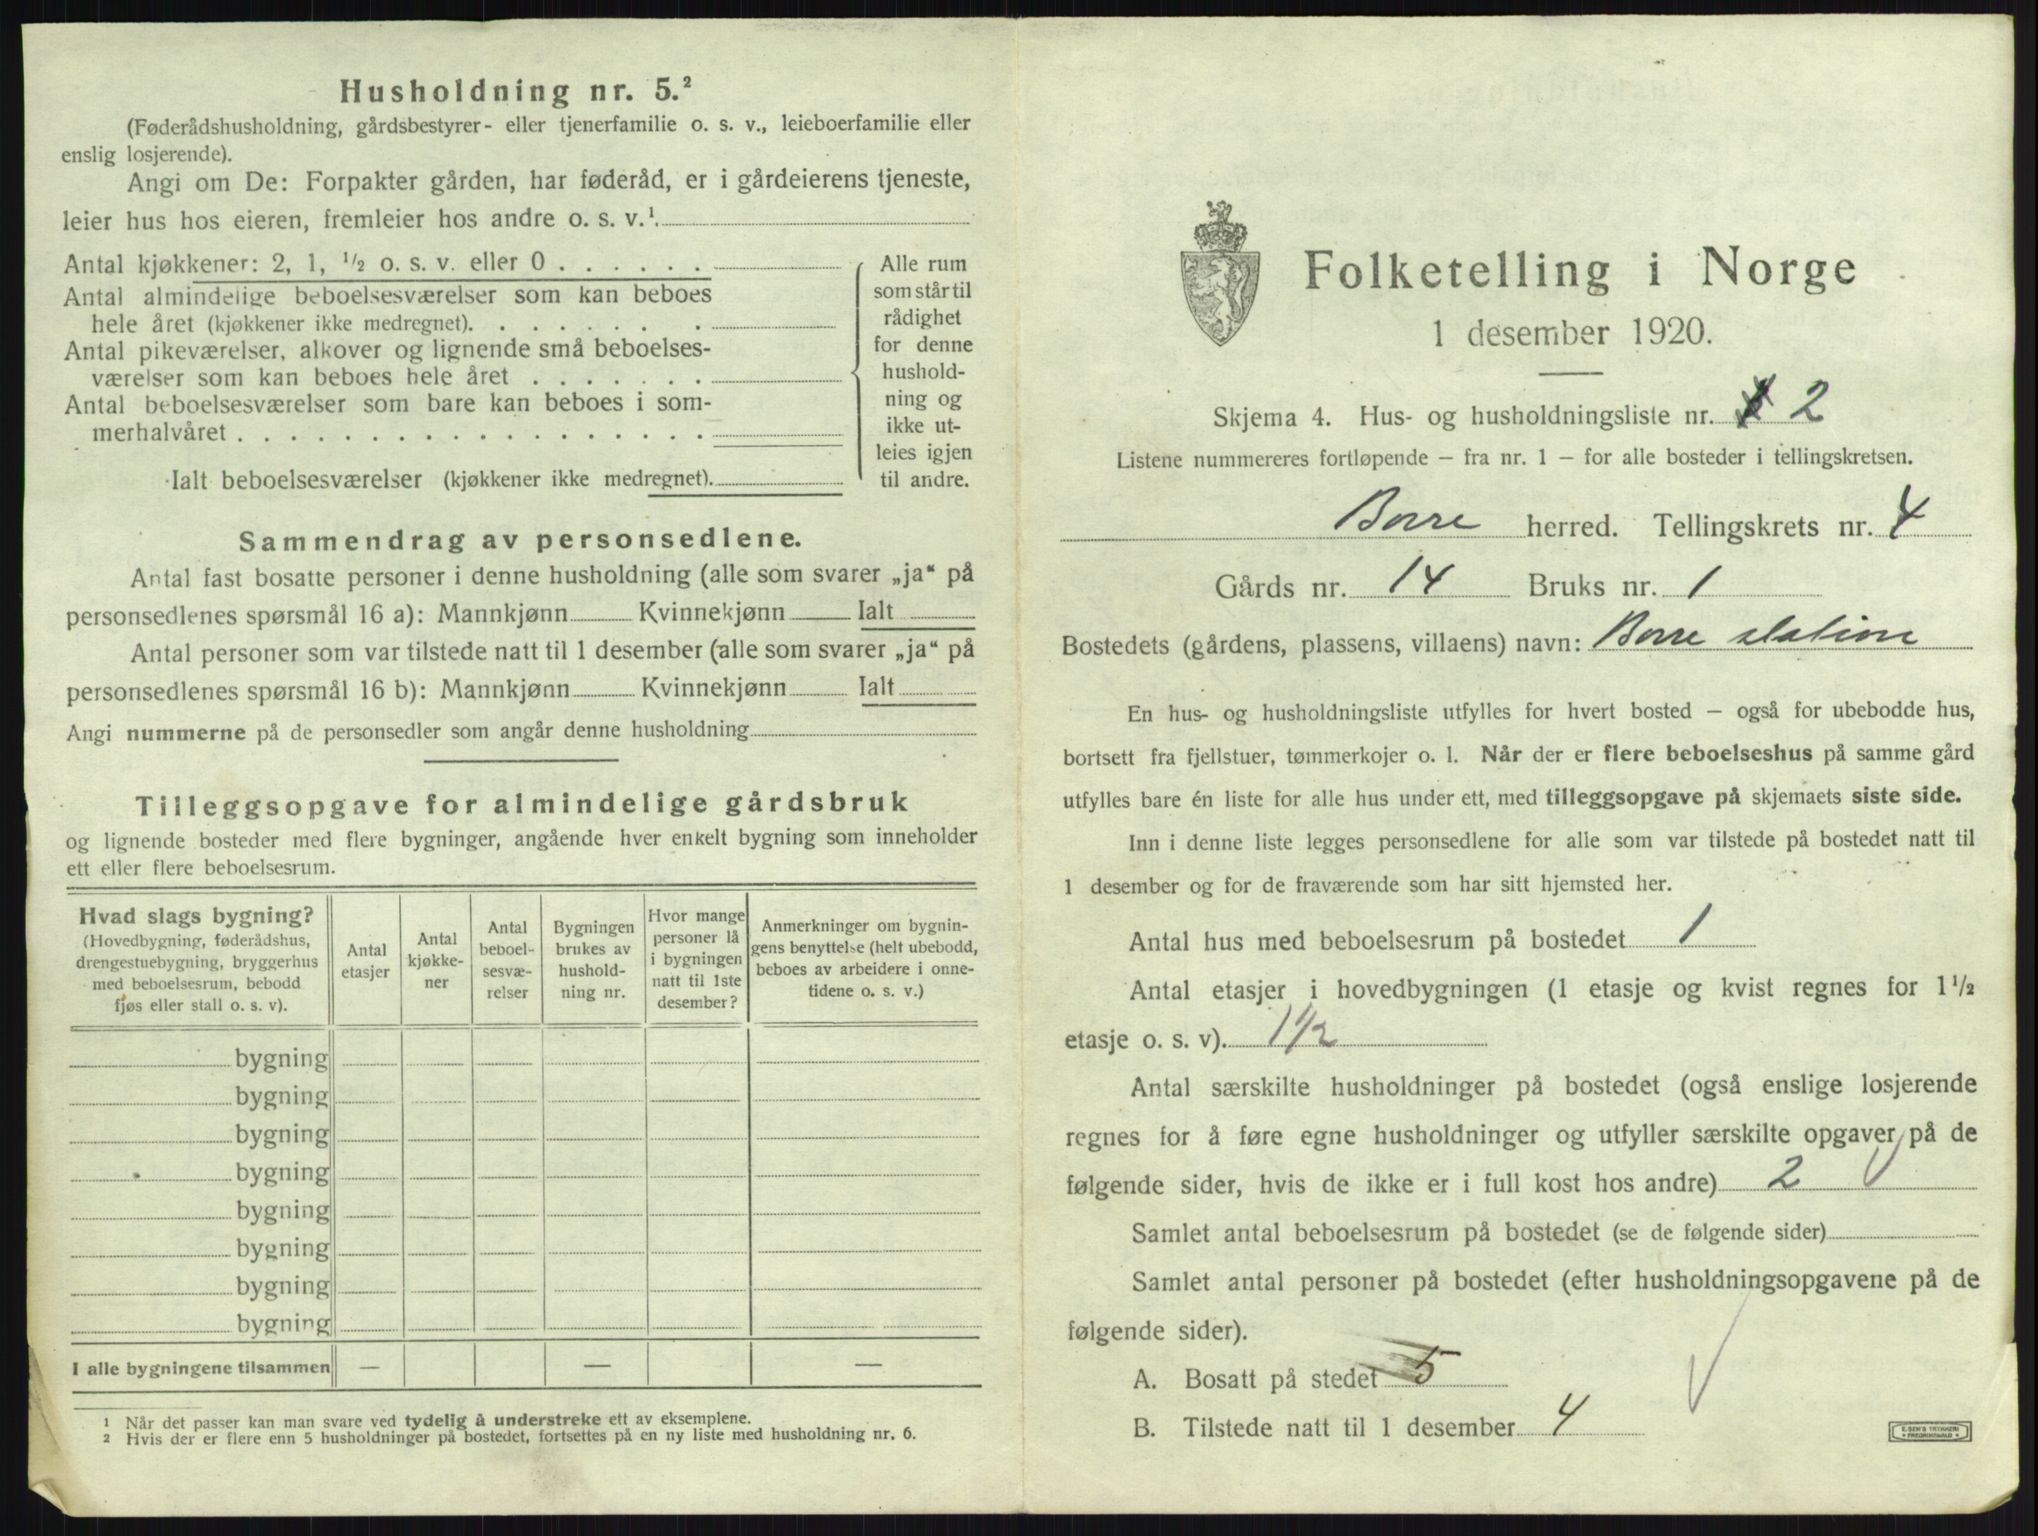 Husholdning nr. 5.²
(Føderådshusholdning, gårdsbestyrer- eller tjenerfamilie o. s. v., leieboerfamilie eller
enslig losjerende).
Angi om De: Forpakter gården, har føderåd, er i gårdeierens tjeneste,
leier hus hos eieren, fremleier hos andre o. s. v.¹
Antal kjøkkener: 2, 1, ½ o. s. v. eller 0
Antal almindelige beboelsesværelser som kan beboes
hele året (kjøkkener ikke medregnet).
Antal pikeværelser, alkover og lignende små beboelses-
værelser som kan beboes hele året
Antal beboelsesværelser som bare kan beboes i som-
merhalvåret
Ialt beboelsesværelser (kjøkkener ikke medregnet).
Alle rum
som står til
rådighet
for denne
hushold-
ning og
ikke ut-
leies igjen
til andre.
Sammendrag av personsedlene.
Antal fast bosatte personer i denne husholdning (alle som svarer „ja“ på
personsedlenes spørsmål 16 a): Mannkjønn Kvinnekjønn Ialt
Antal personer som var tilstede natt til 1 desember (alle som svarer „ja“ på
personsedlenes spørsmål 16 b): Mannkjønn Kvinnekjønn Ialt
Angi nummerne på de personsedler som angår denne husholdning
Tilleggsopgave for almindelige gårdsbruk
og lignende bosteder med flere bygninger, angående hver enkelt bygning som inneholder
ett eller flere beboelsesrum.
Hvad slags bygning?
(Hovedbygning, føderådshus,
drengestuebygning, bryggerhus
med beboelsesrum, bebodd
fjøs eller stall o. s. v).
Antal
etasjer
Antal
kjøkke-
ner
Antal
beboel-
sesvæ-
relser
Bygningen
brukes av
hushold-
ning nr.
Hvor mange
personer lå
i bygningen
natt til 1ste
desember?
Anmerkninger om bygnin-
gens benyttelse (helt ubebodd,
beboes av arbeidere i onne-
tidene o. s. v.)
bygning
bygning
bygning
bygning
bygning
bygning
bygning
bygning
I alle bygningene tilsammen — — —
1 Når det passer kan man svare ved tydelig å understreke ett av eksemplene.
2 Hvis der er flere enn 5 husholdninger på bostedet, fortsettes på en ny liste med husholdning nr. 6.
Folketelling i Norge
1 desember 1920.
Skjema 4. Hus- og husholdningsliste nr. 2
Listene nummereres fortløpende — fra nr. 1 — for alle bosteder i tellingskretsen.
Borre herred. Tellingskrets nr. 4
Gårds nr. 14 Bruks nr. 1
Bostedets (gårdens, plassens, villaens) navn: Borre station
En hus- og husholdningsliste utfylles for hvert bosted — også for ubebodde hus,
bortsett fra fjellstuer, tømmerkojer o. l. Når der er flere beboelseshus på samme gård
utfylles bare én liste for alle hus under ett, med tilleggsopgave på skjemaets siste side.
Inn i denne liste legges personsedlene for alle som var tilstede på bostedet natt til
1 desember og for de fraværende som har sitt hjemsted her.
Antal hus med beboelsesrum på bostedet 1
Antal etasjer i hovedbygningen (1 etasje og kvist regnes for 1½
etasje o. s. v). 1½
Antal særskilte husholdninger på bostedet (også enslige losjerende
regnes for å føre egne husholdninger og utfyller særskilte opgaver på de
følgende sider, hvis de ikke er i full kost hos andre) 2
Samlet antal beboelsesrum på bostedet (se de følgende sider)
Samlet antal personer på bostedet (efter husholdningsopgavene på de
følgende sider).
A. Bosatt på stedet 5
B. Tilstede natt til 1 desember 4